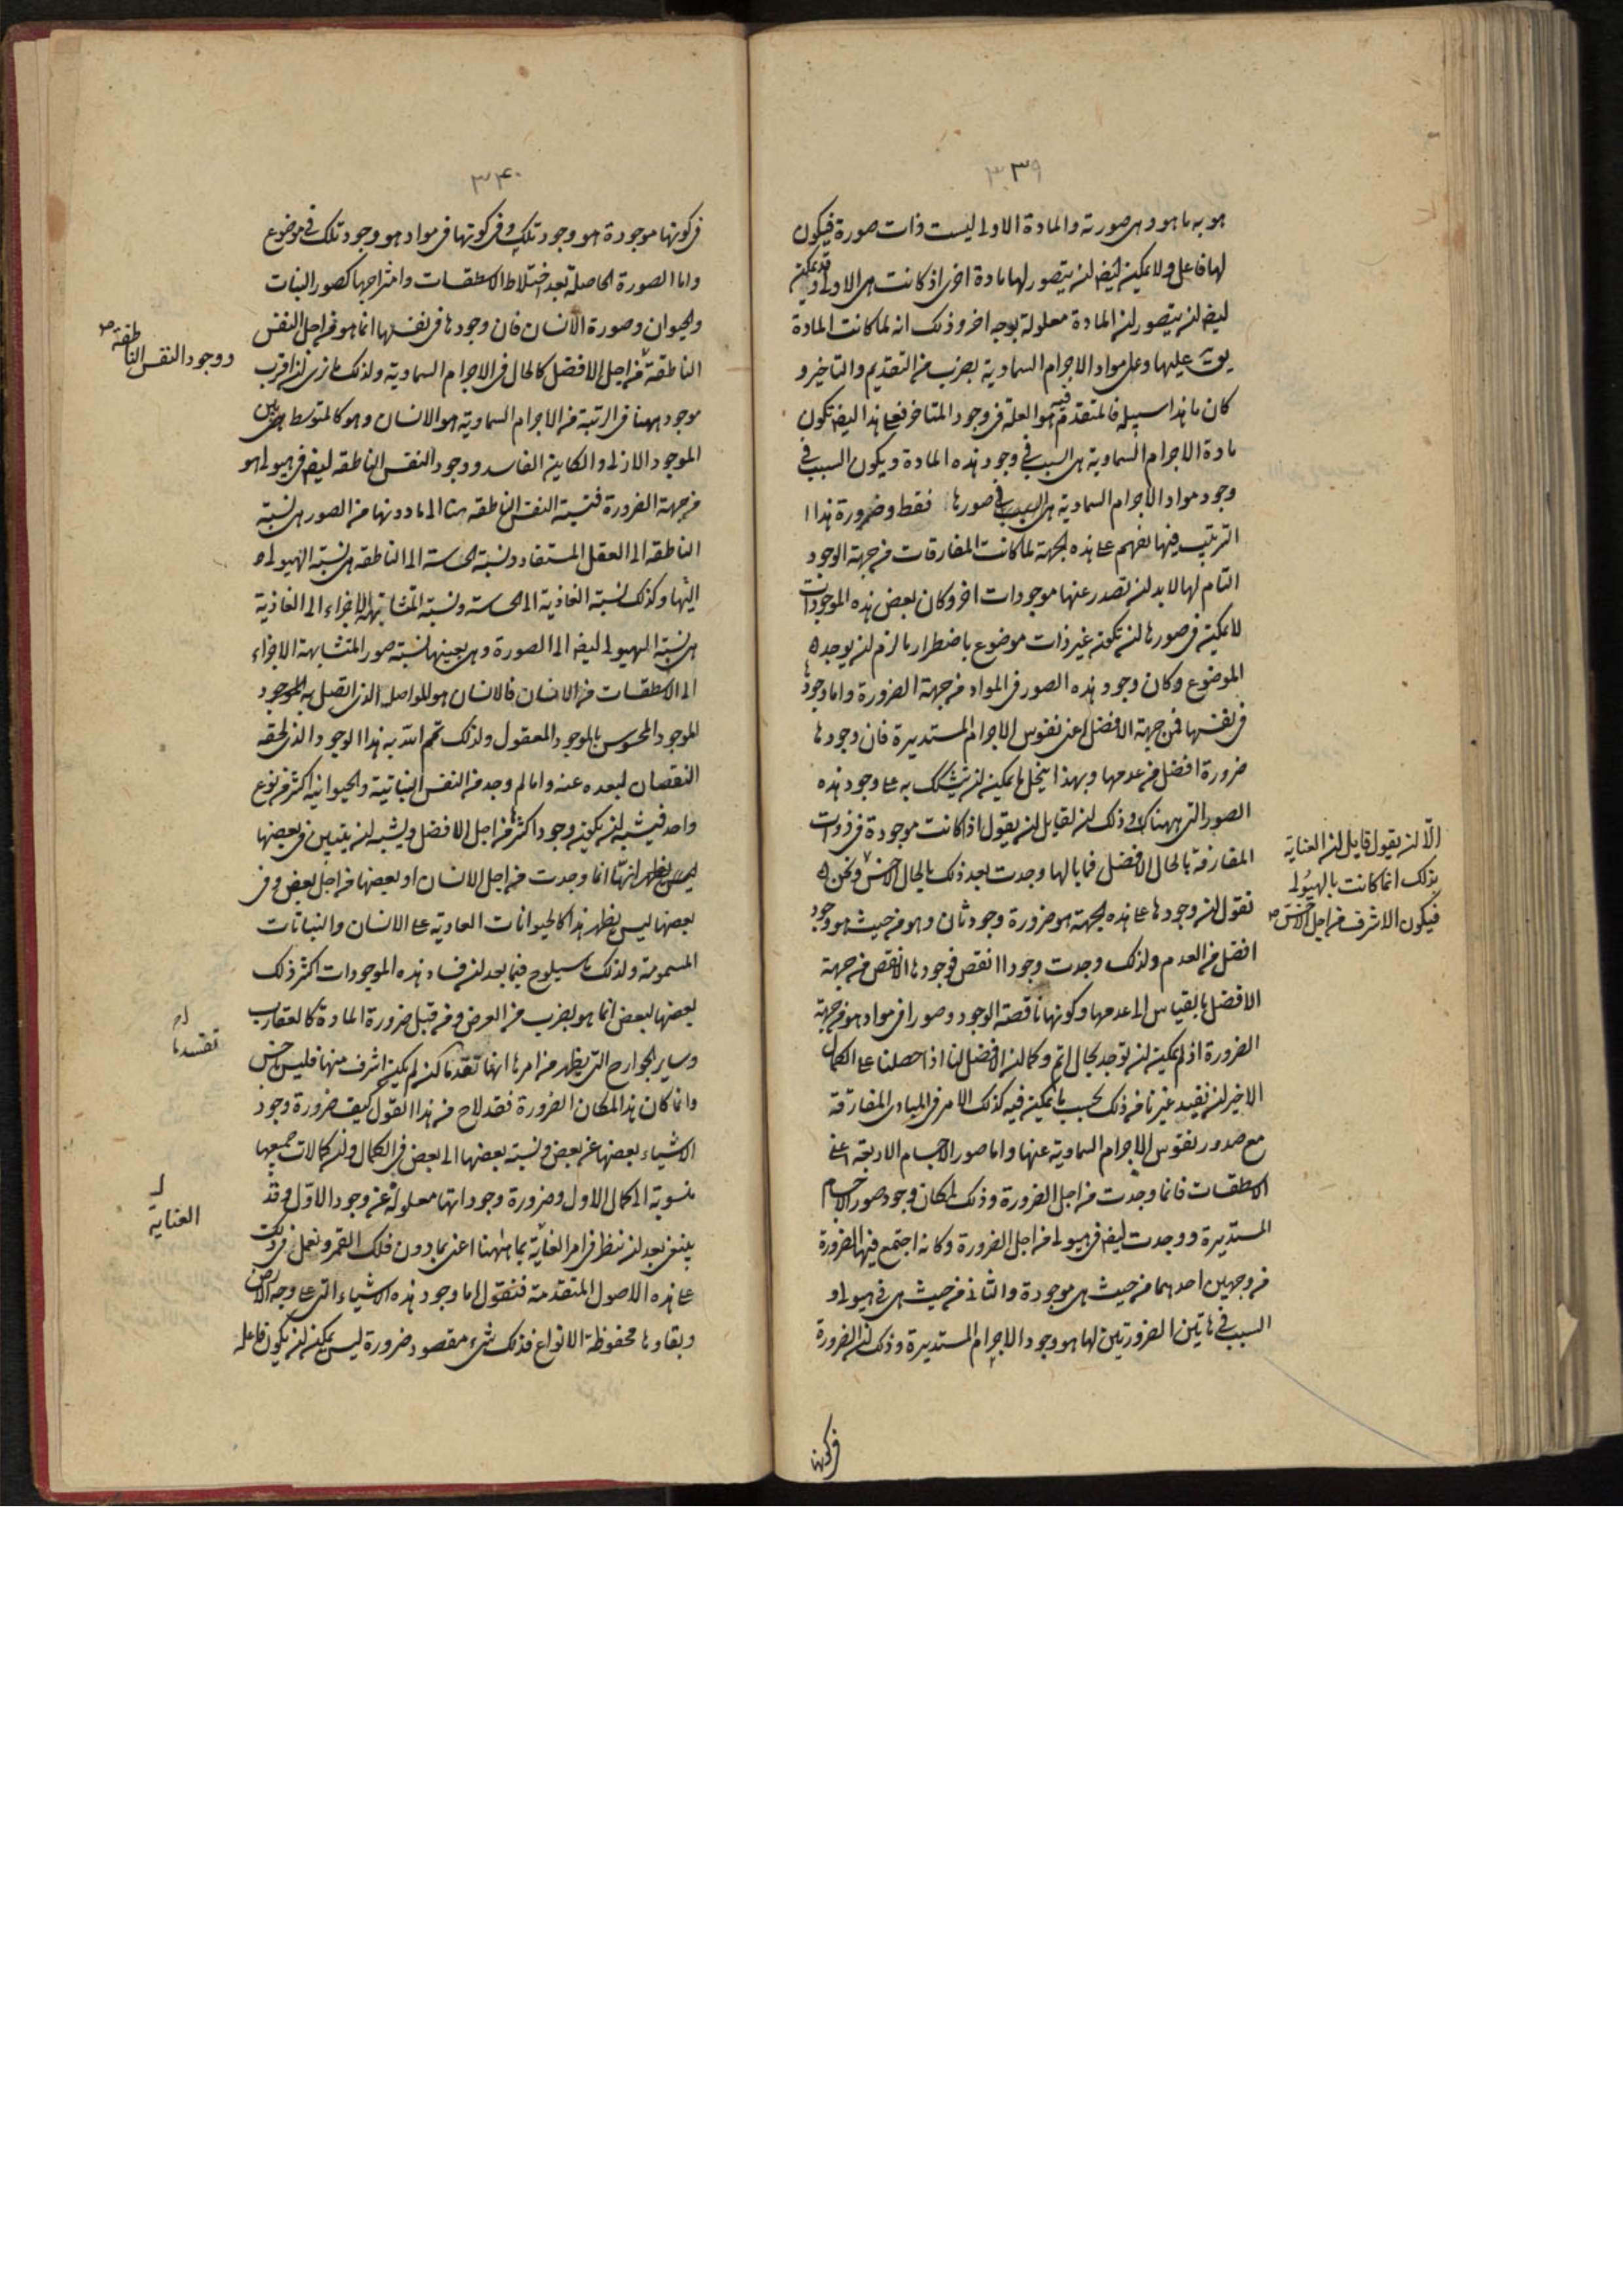 ٣٣٩
هو به ما هو وهى صورته والمادة الاولى ليست ذات صورة فيكون
لها فاعل ولا يمكن ايضا ان يتصور لها مادة اخرى اذ كانت هى الاولى وقد يمكن
ايضا ان يتصور ان المادة معلولة بوجه اخر وذلك انه لما كانت المادة
يق عليها وعلى مواد الاجرام السماوية بضرب من التقديم والتاخير و
كان ما هذا سبيله فالمتقدم فيه هو العلة فى وجود المتاخر فعلى هذا ايضا تكون
مادة الاجرام السماوية هى السبب فى وجود هذه المادة ويكون السبب فى
وجود مواد الاجرام السماوية هى السبب فى صورها فقط وضرورة هذا ا
الترتيب فيها تفهم على هذه الجهة لما كانت المفارقات من جهة الوجود
التام لها لا بد ان تصدر عنها موجودات اخر وكان بعض هذه الموجودات
لا يمكن فى صورها ان تكون غير ذات موضوع باضطرار ما لزم ان يوجد
الموضوع وكان وجود هذه الصور فى المواد من جهة الضرورة واما وجودها
فى نفسها فمن جهة الافضل اعنى نفوس الاجرام المستديرة فان وجودها
ضرورة افضل من عدمها وبهذا ينحل ما يمكن ان يتشكك به على وجود هذه
الصور التى ههنا وذلك ان لقايل ان يقول اذا كانت موجودة فى ذوات
المفارقة بالحال الافضل فما بالها وجدت بعد ذلك بالحال الاخس ونحن
نقول ان وجودها على هذه الجهة هو ضرورة وجود ثان وهو من حيث هو وجود
افضل من العدم ولذلك وجدت وجودا انقص فوجودها الانقص من جهة
الافضل بالقياس الى عدمها وكونها ناقصة الوجود وصورا فى مواد هو من جهة
الضرورة اذ لم يمكن ان توجد بحال اتم وكما ان الافضل لنا اذا حصلنا على الكمال
الاخير ان نفيد غيرنا من ذلك بحسب ما يمكن فيه كذلك الامر فى المبادى المفارقة
مع صدور نفوس الاجرام السماوية عنها واما صور الاجسام الاربعة اعنى
الاسطقسات فانما وجدت من اجل الضرورة وذلك لمكان وجود صور الاجسام
المستديرة ووجدت ايضا فى هيولى من اجل الضرورة وكانه اجتمع فيها الضرورة
من وجهين احدهما من حيث هى موجودة والثانى من حيث هى فى هيولى و
السبب فى هاتين الضرورتين لها هو وجود الاجرام المستديرة وذلك ان الضرورة
فى كونها
الّا ان يقول قايل ان العناية
بذلك انما كانت بالهيولى
فيكون الاشرف من اجل الاخس صح
٣٤٠
فى كونها موجودة هو وجود تلك وفى كونها فى مواد هو وجود تلك فى موضوع
واما الصورة الحاصلة بعد اختلاط الاسطقسات وامتزاجها كصور النبات
والحيوان وصورة الانسان فان وجودها فى نفسها انما هو من اجل النفس
الناطقة من اجل الافضل كالحال فى الاجرام السماوية ولذلك ما نرى ان اقرب
موجود ههنا فى الرتبة من الاجرام السماوية هو الانسان وهو كالمتوسط بين
الموجود الازلى والكاين الفاسد ووجود النفس الناطقه ايضا فى هيولى هو
من جهة الضرورة فنسبة النفس الناطقه منا الى ما دونها من الصور هى نسبة
الناطقه الى العقل المستفاد ونسبة الحاسة الى الناطقه هى نسبة الهيولى
اليها وكذلك نسبة الغاذية الى الحاسة ونسبة المتشابهة الاجزاء الى الغاذية
هى نسبة الهيولى ايضا الى الصورة وهى بعينها نسبة صور المتشابهة الاجزاء
الى الاسطقسات من الانسان فالانسان هو المواصل الذى اتصل به الموجود
الموجود المحسوس بالموجود المعقول ولذلك تمم الله به هذا الوجود الذى لحقه
النقصان لبعده عنه واما لم وجد من النفس النباتية والحيوانية اكثر من نوع
واحد فيشبه ان يكون وجود اكثرها من اجل الافضل ويشبه ان يتبين فى بعضها
انها انما وجدت من اجل الانسان او بعضها من اجل بعض وفى
بعضها ليس يظهر هذا كالحيوانات العادية على الانسان والنباتات
المسمومة ولذلك ما سيلوح فيما بعد ان فساد هذه الموجودات اكثر ذلك
بعضها لبعض انما هو بضرب من العرض ومن قبل ضرورة المادة كالعقارب
وساير الجوارح التى يظهر من امرها انها لكن لم يمكن اشرف منها فليس باخس
وانما كان هذا لمكان الضرورة فقد لاح من هذا القول كيف ضرورة وجود
الاشياء بعضها عن بعض ونسبة بعضها الى بعض فى الكمال وان كمالات جميعها
منسوبة الى كمال الاول وضرورة وجوداتها معلولة عن وجود الاول وقد
ينبغى بعد ان ننظر فى امر العناية بما ههنا اعنى بما دون فلك القمر ونعمل فى ذلك
على هذه الاصول المتقدمة فنقول اما وجود هذه الاشياء التى على وجه الارض
وبقاوها محفوظة الانواع فذلك شىء مقصود ضرورة ليس يمكن ان يكون فاعله
ووجود النفس الناطقة صح
تفسدها
العناية